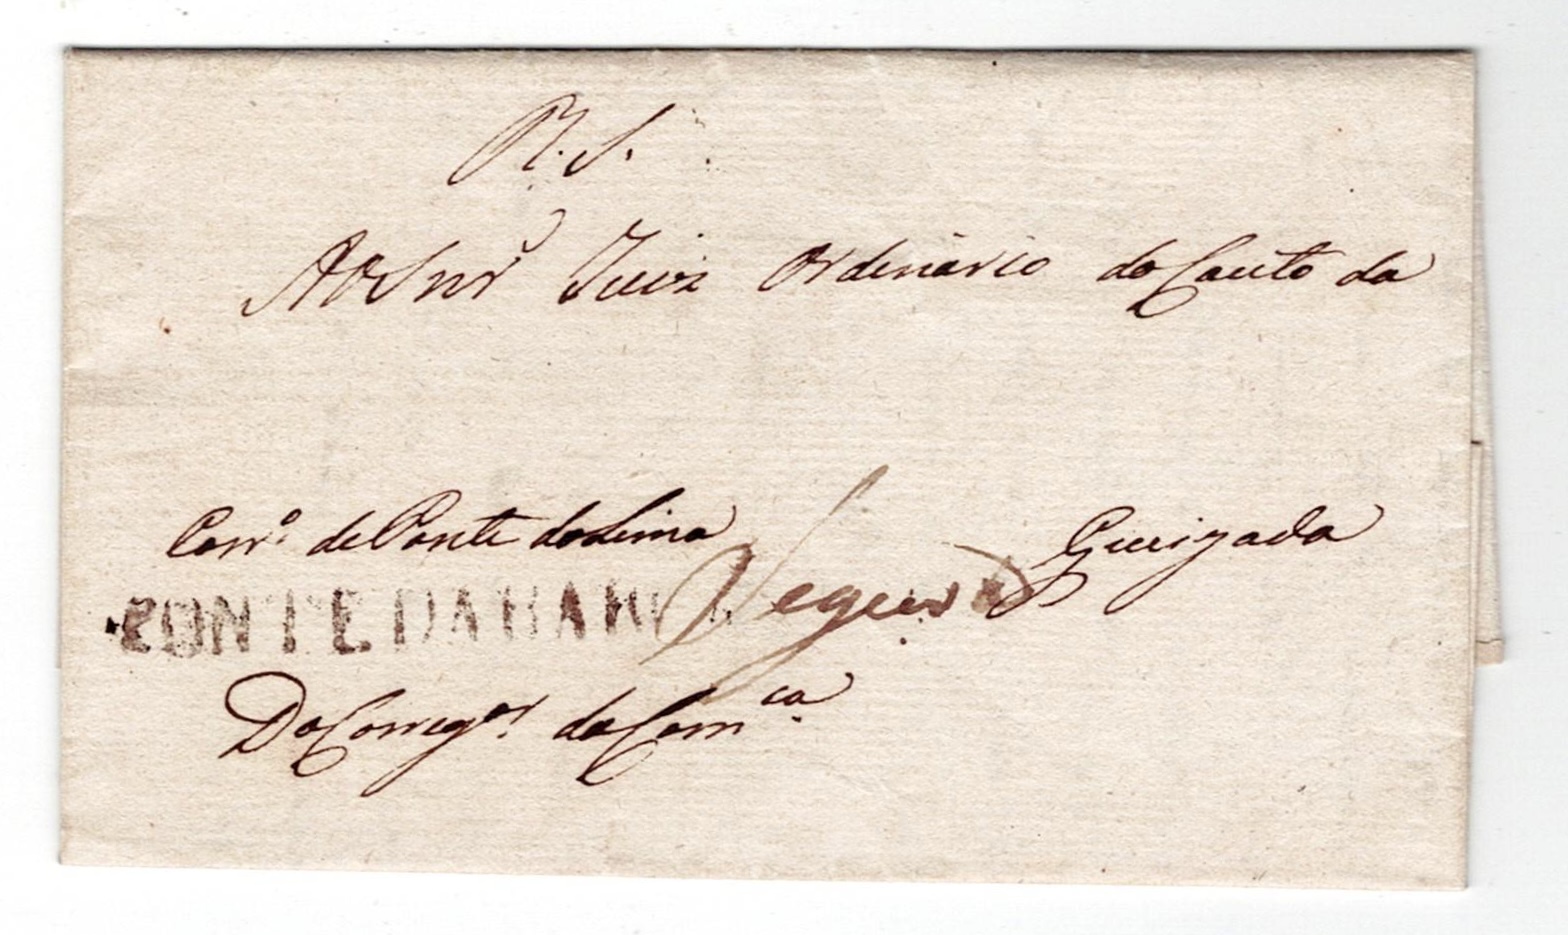 R. S.
Ao Snr Juiz Ordinario do Couto da
Queijada
Corrº de Ponte do Lima
Segura
PONTE DA BAR
Do Corregor. da Comca.